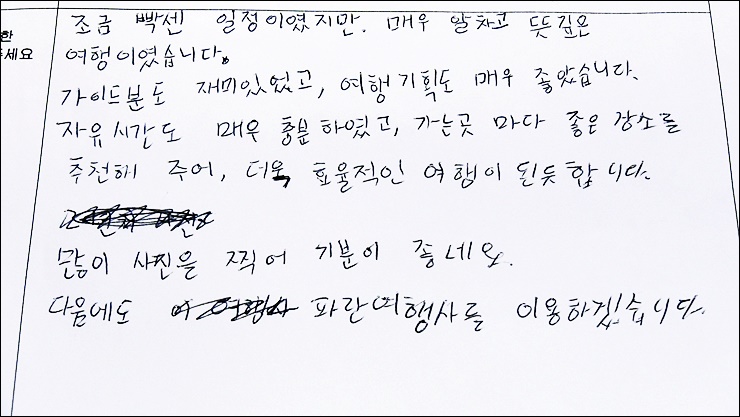 한
주세요
조금 빡센 일정이였지만. 매우 알차고 뜻깊은
여행이였습니다.
가이드분도 재미있었고, 여행기획도 매우 좋았습니다.
자유시간도 매우 충분하였고, 가는곳 마다 좋은 장소를
추천해 주어, 더욱 효율적인 여행이 된듯 합니다.
많이 사진을 찍어 기분이 좋네요.
다음에도 파란여행사를 이용하겠습니다.